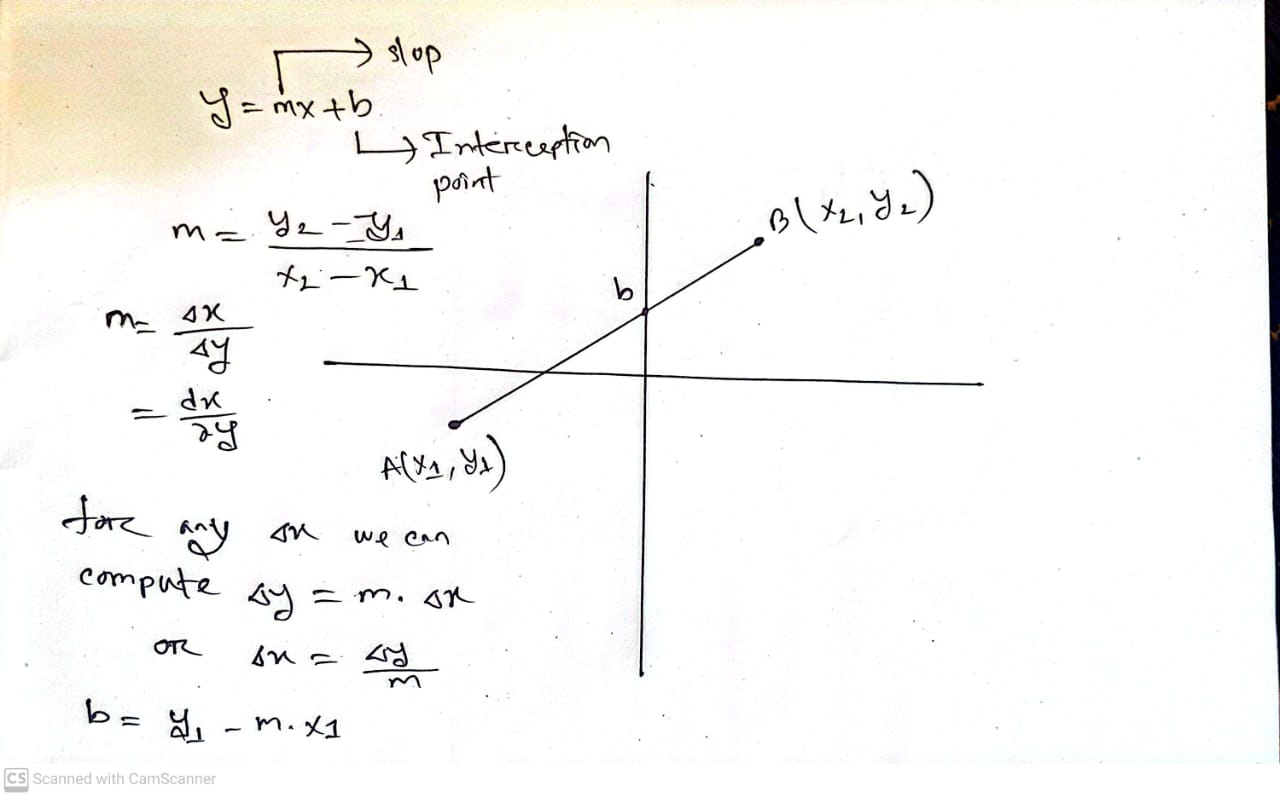 slop
y = mx + b
Interception
point
m = y₂ - y₁ / x₂ - x₁
m = Δx / Δy
= dx / dy
b
B(x₂, y₂)
A(x₁, y₁)
for any Δx we can
compute Δy = m. Δx
or Δx = Δy / m
b = y₁ - m. x₁
CS Scanned with CamScanner